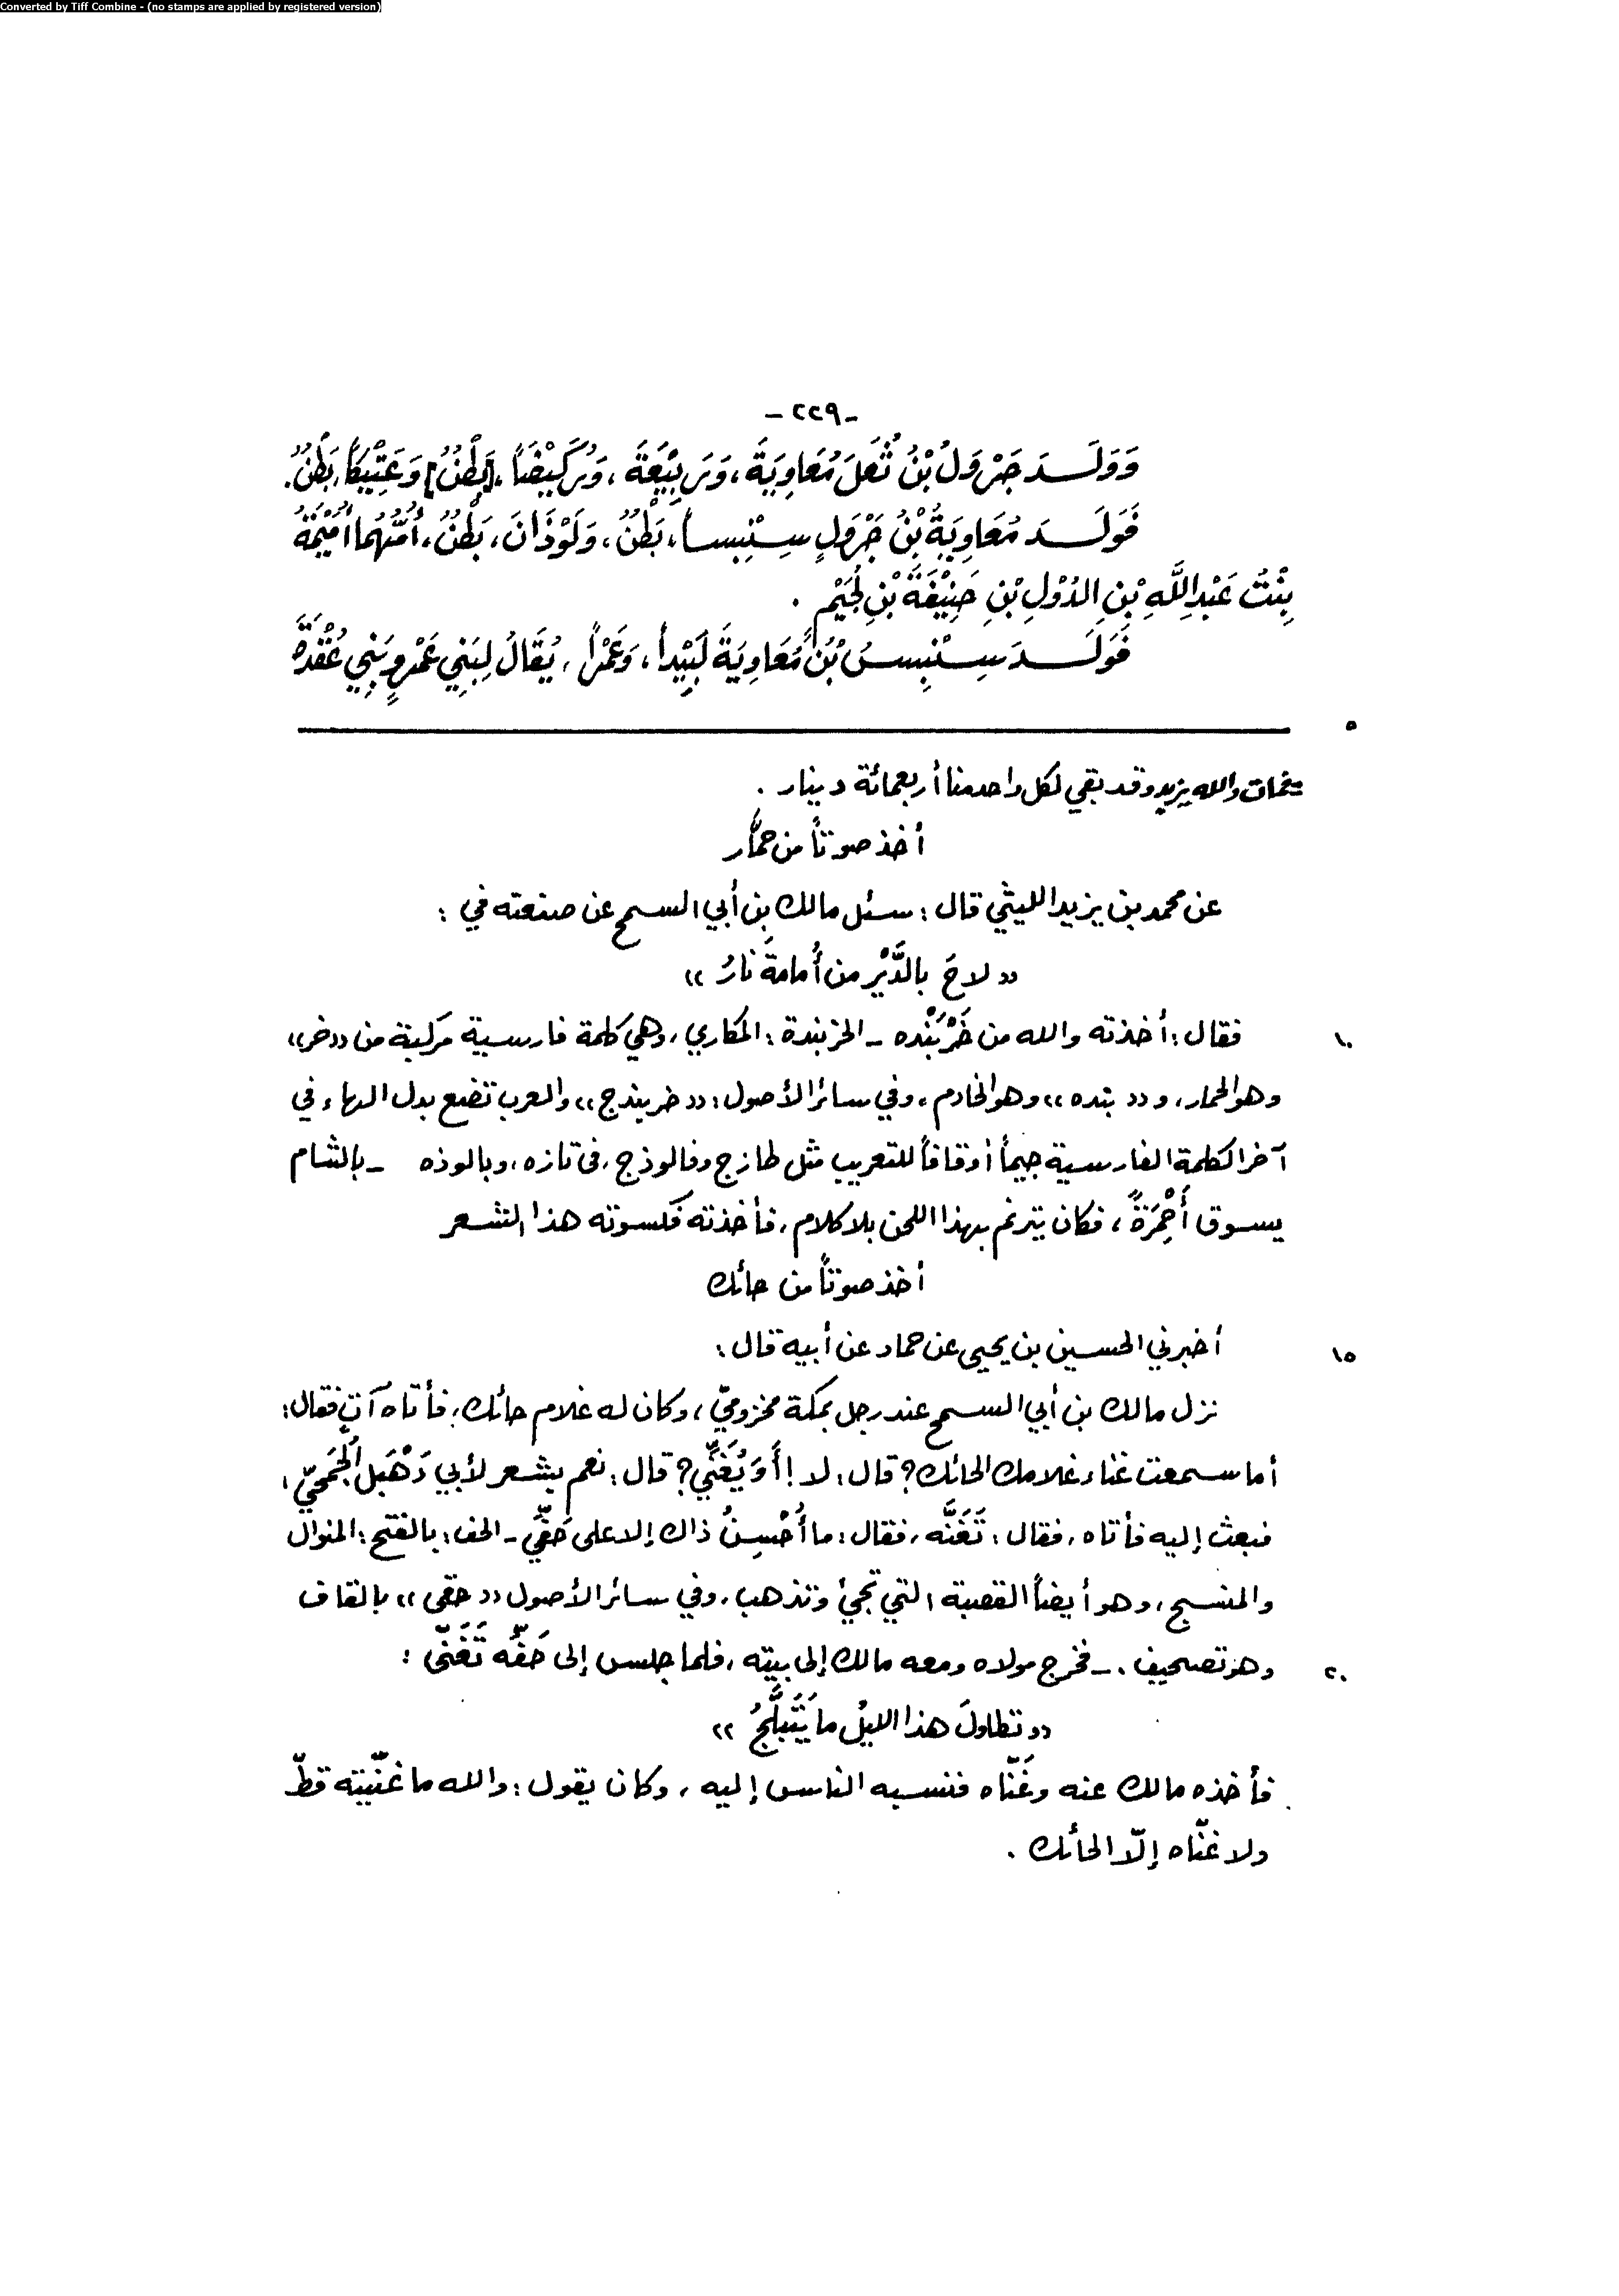 Converted by Tiff Combine - (no stamps are applied by registered version)
- ٢٢٩ -
وَوَلَـدَ جَرْوَلُ بْنُ ثُعَلَ مُعَاوِيَةَ، وَرَبِيْعَةَ، وَرُكَيْضَاً، [بَطْنٌ] وَعَتِيْكَاً، بَطْنٌ.
فَوَلَـدَ مُعَاوِيَةُ بْنُ جَرْوَلٍ سِنْبِساً، بَطْنٌ، وَلَوْذَانَ، بَطْنٌ، أُمُّهُما أُمَيْمَةُ
بِنْتُ عَبْدِ اللَّهِ بْنِ الدُوْلِ بْنِ حَنِيْفَةَ بْنِ لُجَيْمٍ.
فَوَلَـدَ سِنْبِسُ بْنُ مُعَاوِيَةَ لَبِيْداً، وَعَمْراً، يُقَالُ لِبَنِي عَمْرٍو بَنِي عُقْدَةَ
٥
= فمات والله يزيد وقد بقي لكل واحد منا أربعمائة دينار.
أخذ صوتاً من حمَّار
عن محمد بن يزيد الليثي قال: سئل مالك بن أبي السمح عن صنعته في:
« لاحَ بالدَّيْر من أُمامةَ نارُ »
١٠ فقال: أخذته والله من خَرْبَنْده - الخربندة: المكاري، وهي كلمة فارسية مركبة من «خر»
وهو الحمار، و« بنده» وهو الخادم، وفي سائر الأصول: «خربندج»، والعرب تضع بدل الهاء في
آخر الكلمة الفارسية جيماً أو قافاً للتعريب مثل طازج وفالوذج، في تازه، وبالوذه - بالشام
يسوق أَحْمِرَةً، فكان يترنم بهذا اللحن بلا كلام، فأخذته فكسوته هذا الشعر
أخذ صوتاً من حائك
١٥ أخبرني الحسين بن يحيى عن حماد عن أبيه قال:
نزل مالك بن أبي السمح عند رجل بمكة مخزوميّ، وكان له غلام حائك، فأتاه آتٍ فقال:
أما سمعت غناء غلامك الحائك؟ قال: لا! أَوَ يُغَنِّي؟ قال: نعم بشعر لأبي دَهْبَل الجُمَحيّ،
فبعث إليه فأتاه، فقال: تَغَنَّه، فقال: ما أُحْسِنُ ذاك إلا على حَفِّي - الحف: بالفتح: المنوال
والمنسج، وهو أيضاً القصبة التي تجيء وتذهب، وفي سائر الأصول «حقي» بالقاف
٢٠ وهو تصحيف. - فخرج مولاه ومعه مالك إلى بيته، فلما جلس إلى حَفِّه تَغَنّى:
« تطاولَ هذا الليلُ ما يَتَبلَّجُ »
فأخذه مالك عنه وغَنّاه فنسبه الناس إليه، وكان يقول: والله ما غنّيته قطّ
ولا غنّاه إلّا الحائك.